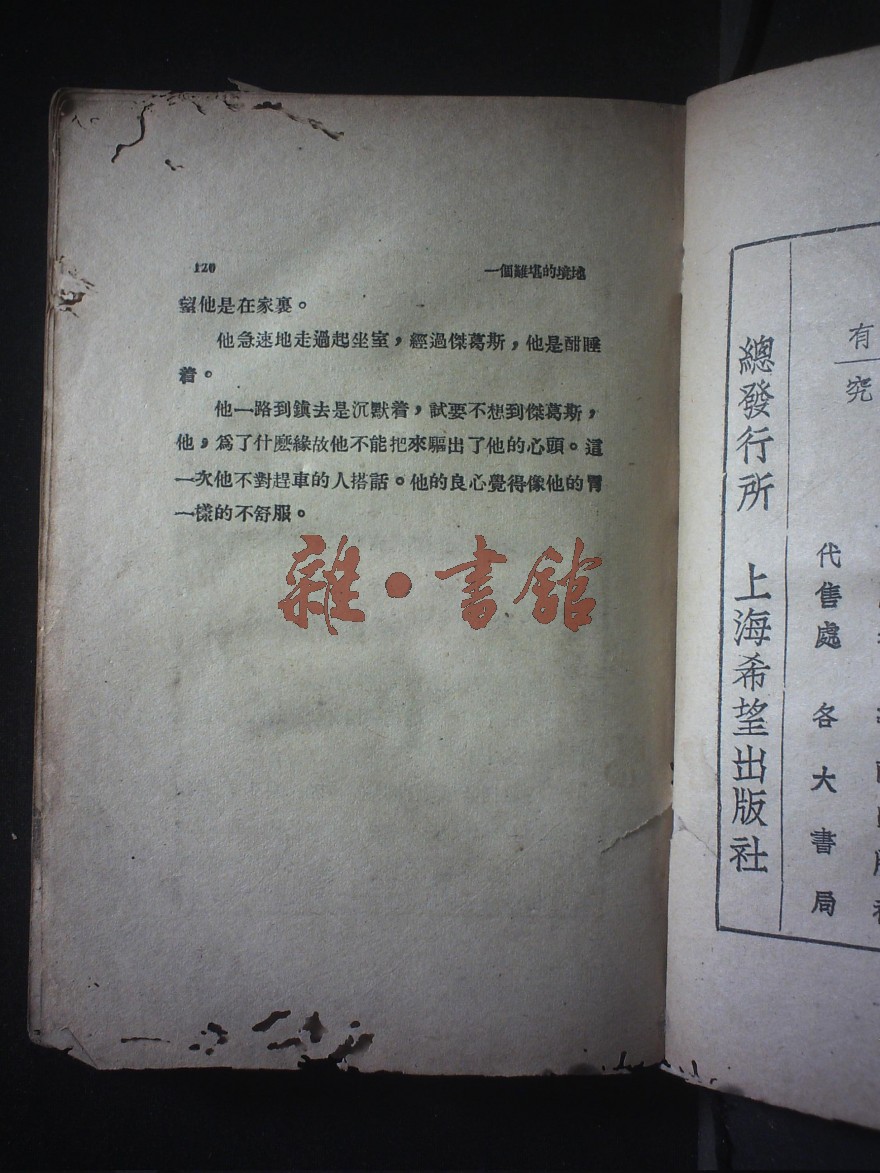 120
一個難堪的境地
望他是在家裏。
他急速地走過起坐室，經過傑葛斯，他是酣睡
着。
他一路到鎮去是沉默着，試要不想到傑葛斯，
他，爲了什麽緣故他不能把來驅出了他的心頭。這
一次他不對趕車的人搭話。他的良心覺得像他的胃
一樣的不舒服。
雜·書館
有
究
代售處 各大書局
總發行所 上海希望出版社